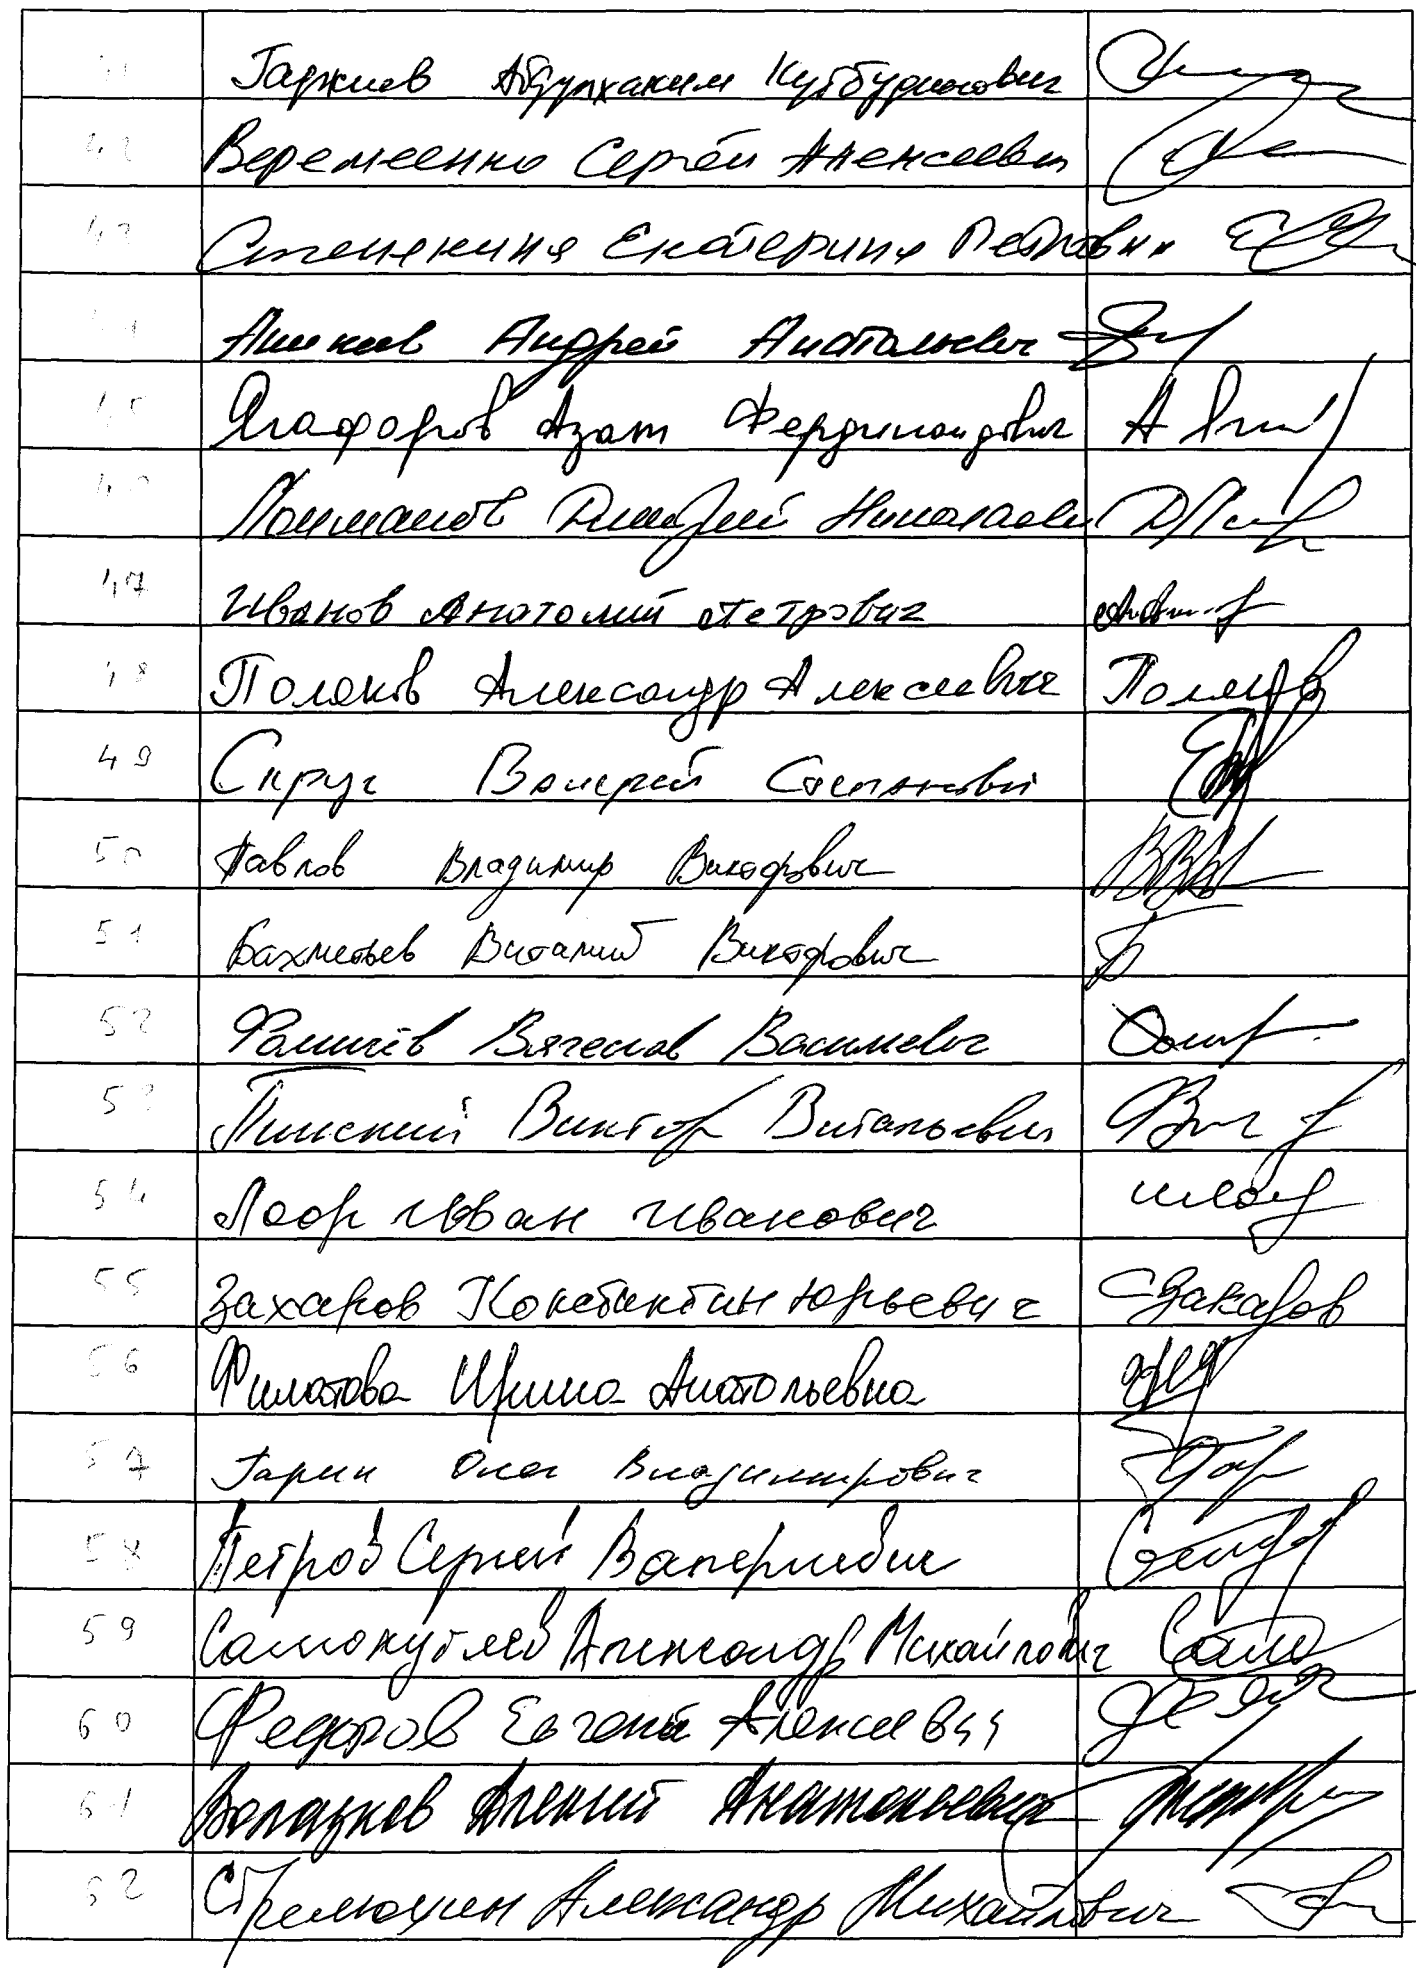 41 Гаджиев Абдулхаким Кутбудинович
42 Веремеенко Сергей Алексеевич
43 Стенякина Екатерина Петровна
44 Аникеев Андрей Анатольевич
45 Ягафаров Азат Фердинандович
46 Дмитрий Николаевич
47 Иванов Анатолий Петрович
48 Поляков Александр Алексеевич Поляков
49 Скруг Валерий Степанович
50 Павлов Владимир Викторович
51 Бахметьев Виталий Викторович Б
52 Фомичёв Вячеслав Васильевич
53 Пинский Виктор Витальевич
54 Лоор Иван Иванович
55 Захаров Константин Юрьевич Захаров
56 Филатова Ирина Анатольевна
57 Гарин Олег Владимирович
58 Петров Сергей Валериевич
59 Самокутяев Александр Михайлович
60 Федоров Евгений Алексеевич
61 Волоцков Алексей Анатольевич
62 Стрелюхин Александр Михайлович